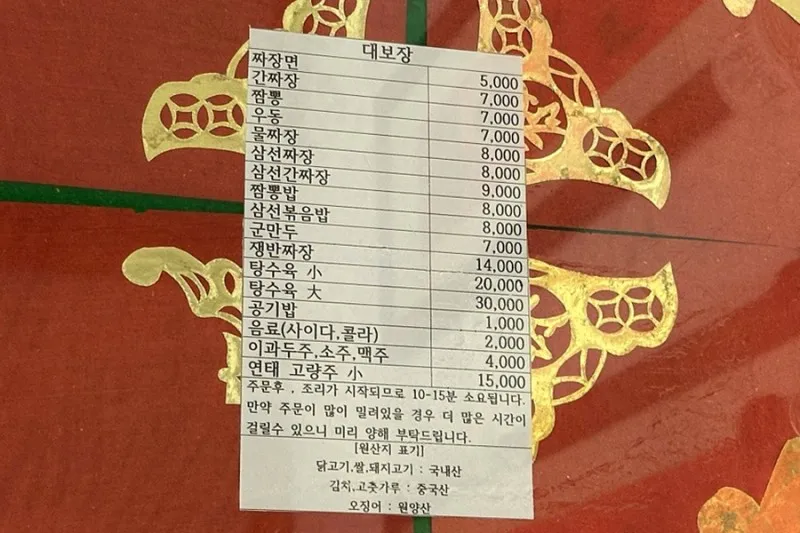 대보장
짜장면 5,000
간짜장 7,000
짬뽕 7,000
우동 7,000
물짜장 8,000
삼선짜장 8,000
삼선간짜장 9,000
짬뽕밥 8,000
삼선볶음밥 8,000
군만두 7,000
쟁반짜장 14,000
탕수육 小 20,000
탕수육 大 30,000
공기밥 1,000
음료(사이다,콜라) 2,000
이과두주,소주,맥주 4,000
연태 고량주 小 15,000
주문후 , 조리가 시작되므로 10-15분 소요됩니다.
만약 주문이 많이 밀려있을 경우 더 많은 시간이
걸릴수 있으니 미리 양해 부탁드립니다.
[원산지 표기]
닭고기,쌀,돼지고기 : 국내산
김치,고춧가루 : 중국산
오징어 : 원양산